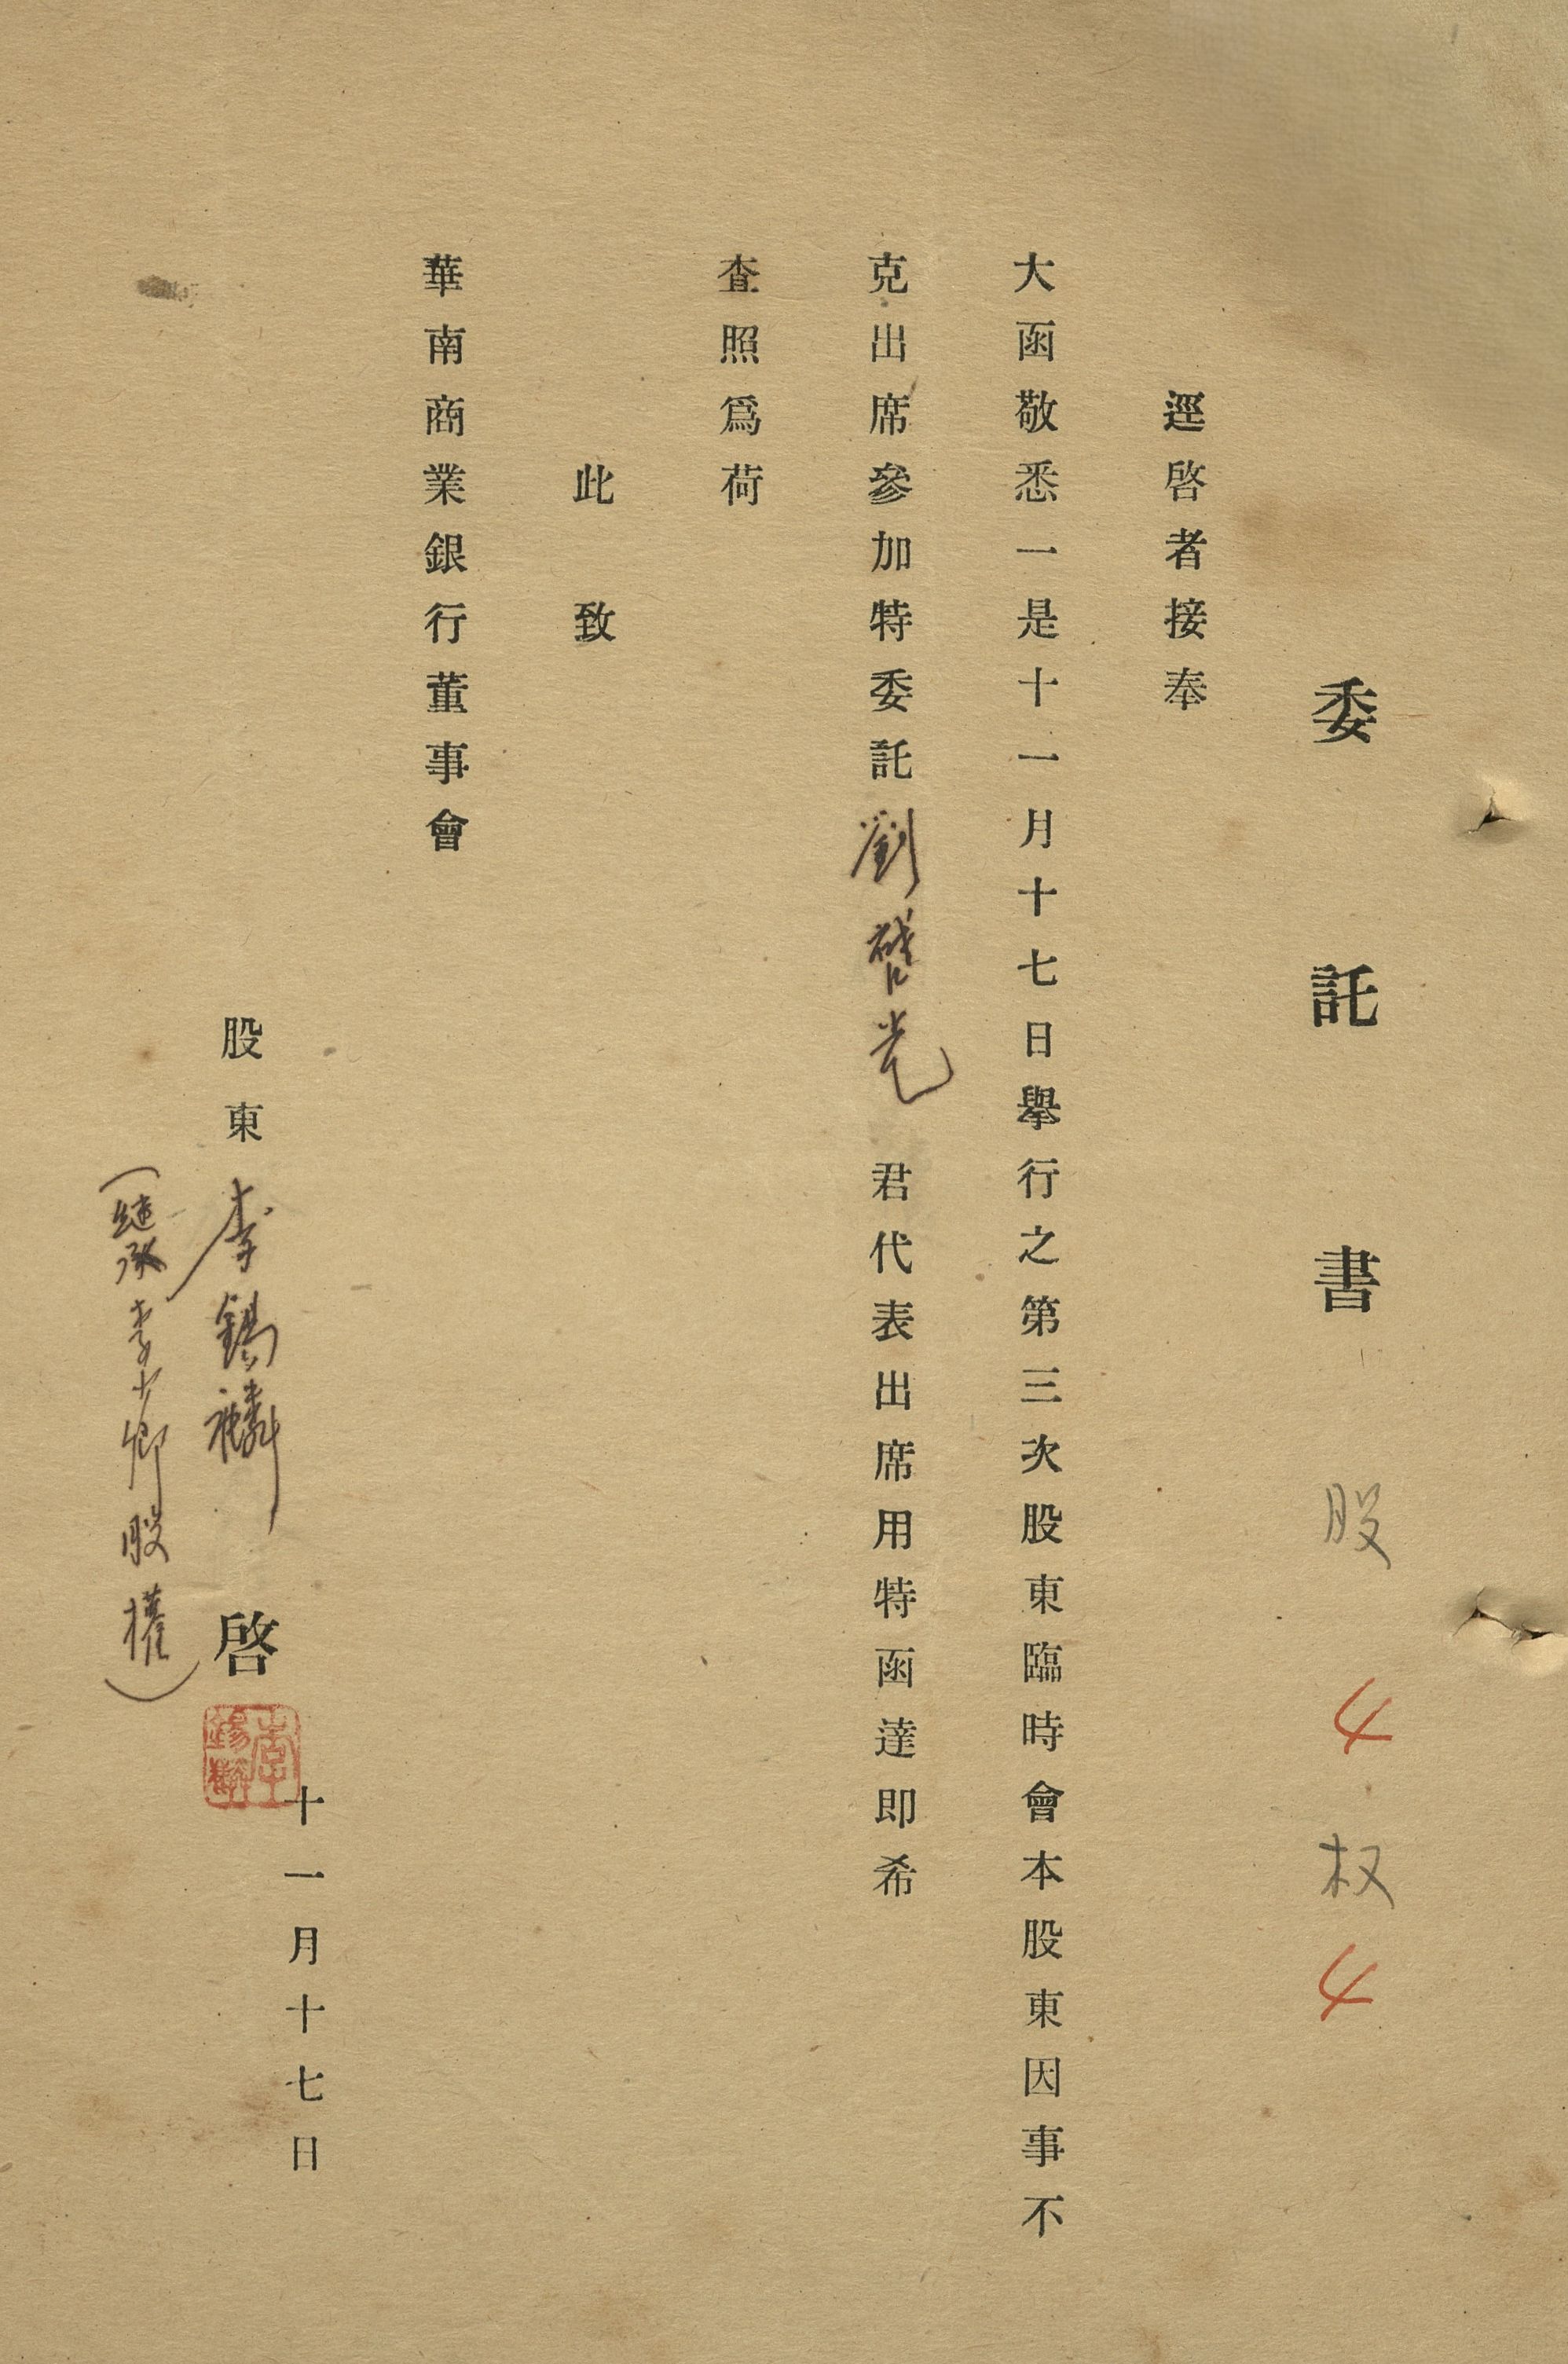 委託書 股 4 权 4
逕啓者接奉
大函敬悉一是十一月十七日舉行之第三次股東臨時會本股東因事不
克出席參加特委託劉啓光 君代表出席用特函達即希
查照爲荷
此致
華南商業銀行董事會
十一月十七日
股東 李錫麟 啓
(継承李少卿股權)